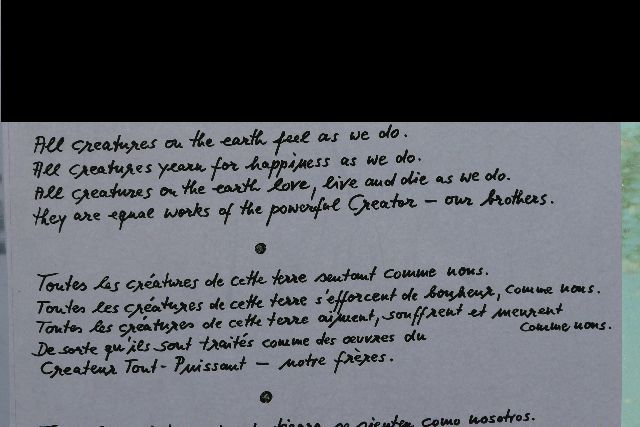 All creatures on the earth feel as we do.
All creatures yearn for happiness as we do.
All creatures on the earth love, live and die as we do.
they are equal works of the powerful Creator – our brothers.
Toutes les créatures de cette terre sentant comme nous.
Toutes les créatures de cette terre s'efforcent de bonheur, comme nous.
Toutes les créatures de cette terre aiment, souffrent et meurent
comme nous.
De sorte qu'ils sont traités comme des œuvres du
Createur Tout-Puissant – notre frères.
tierra se sienten como nosotros.